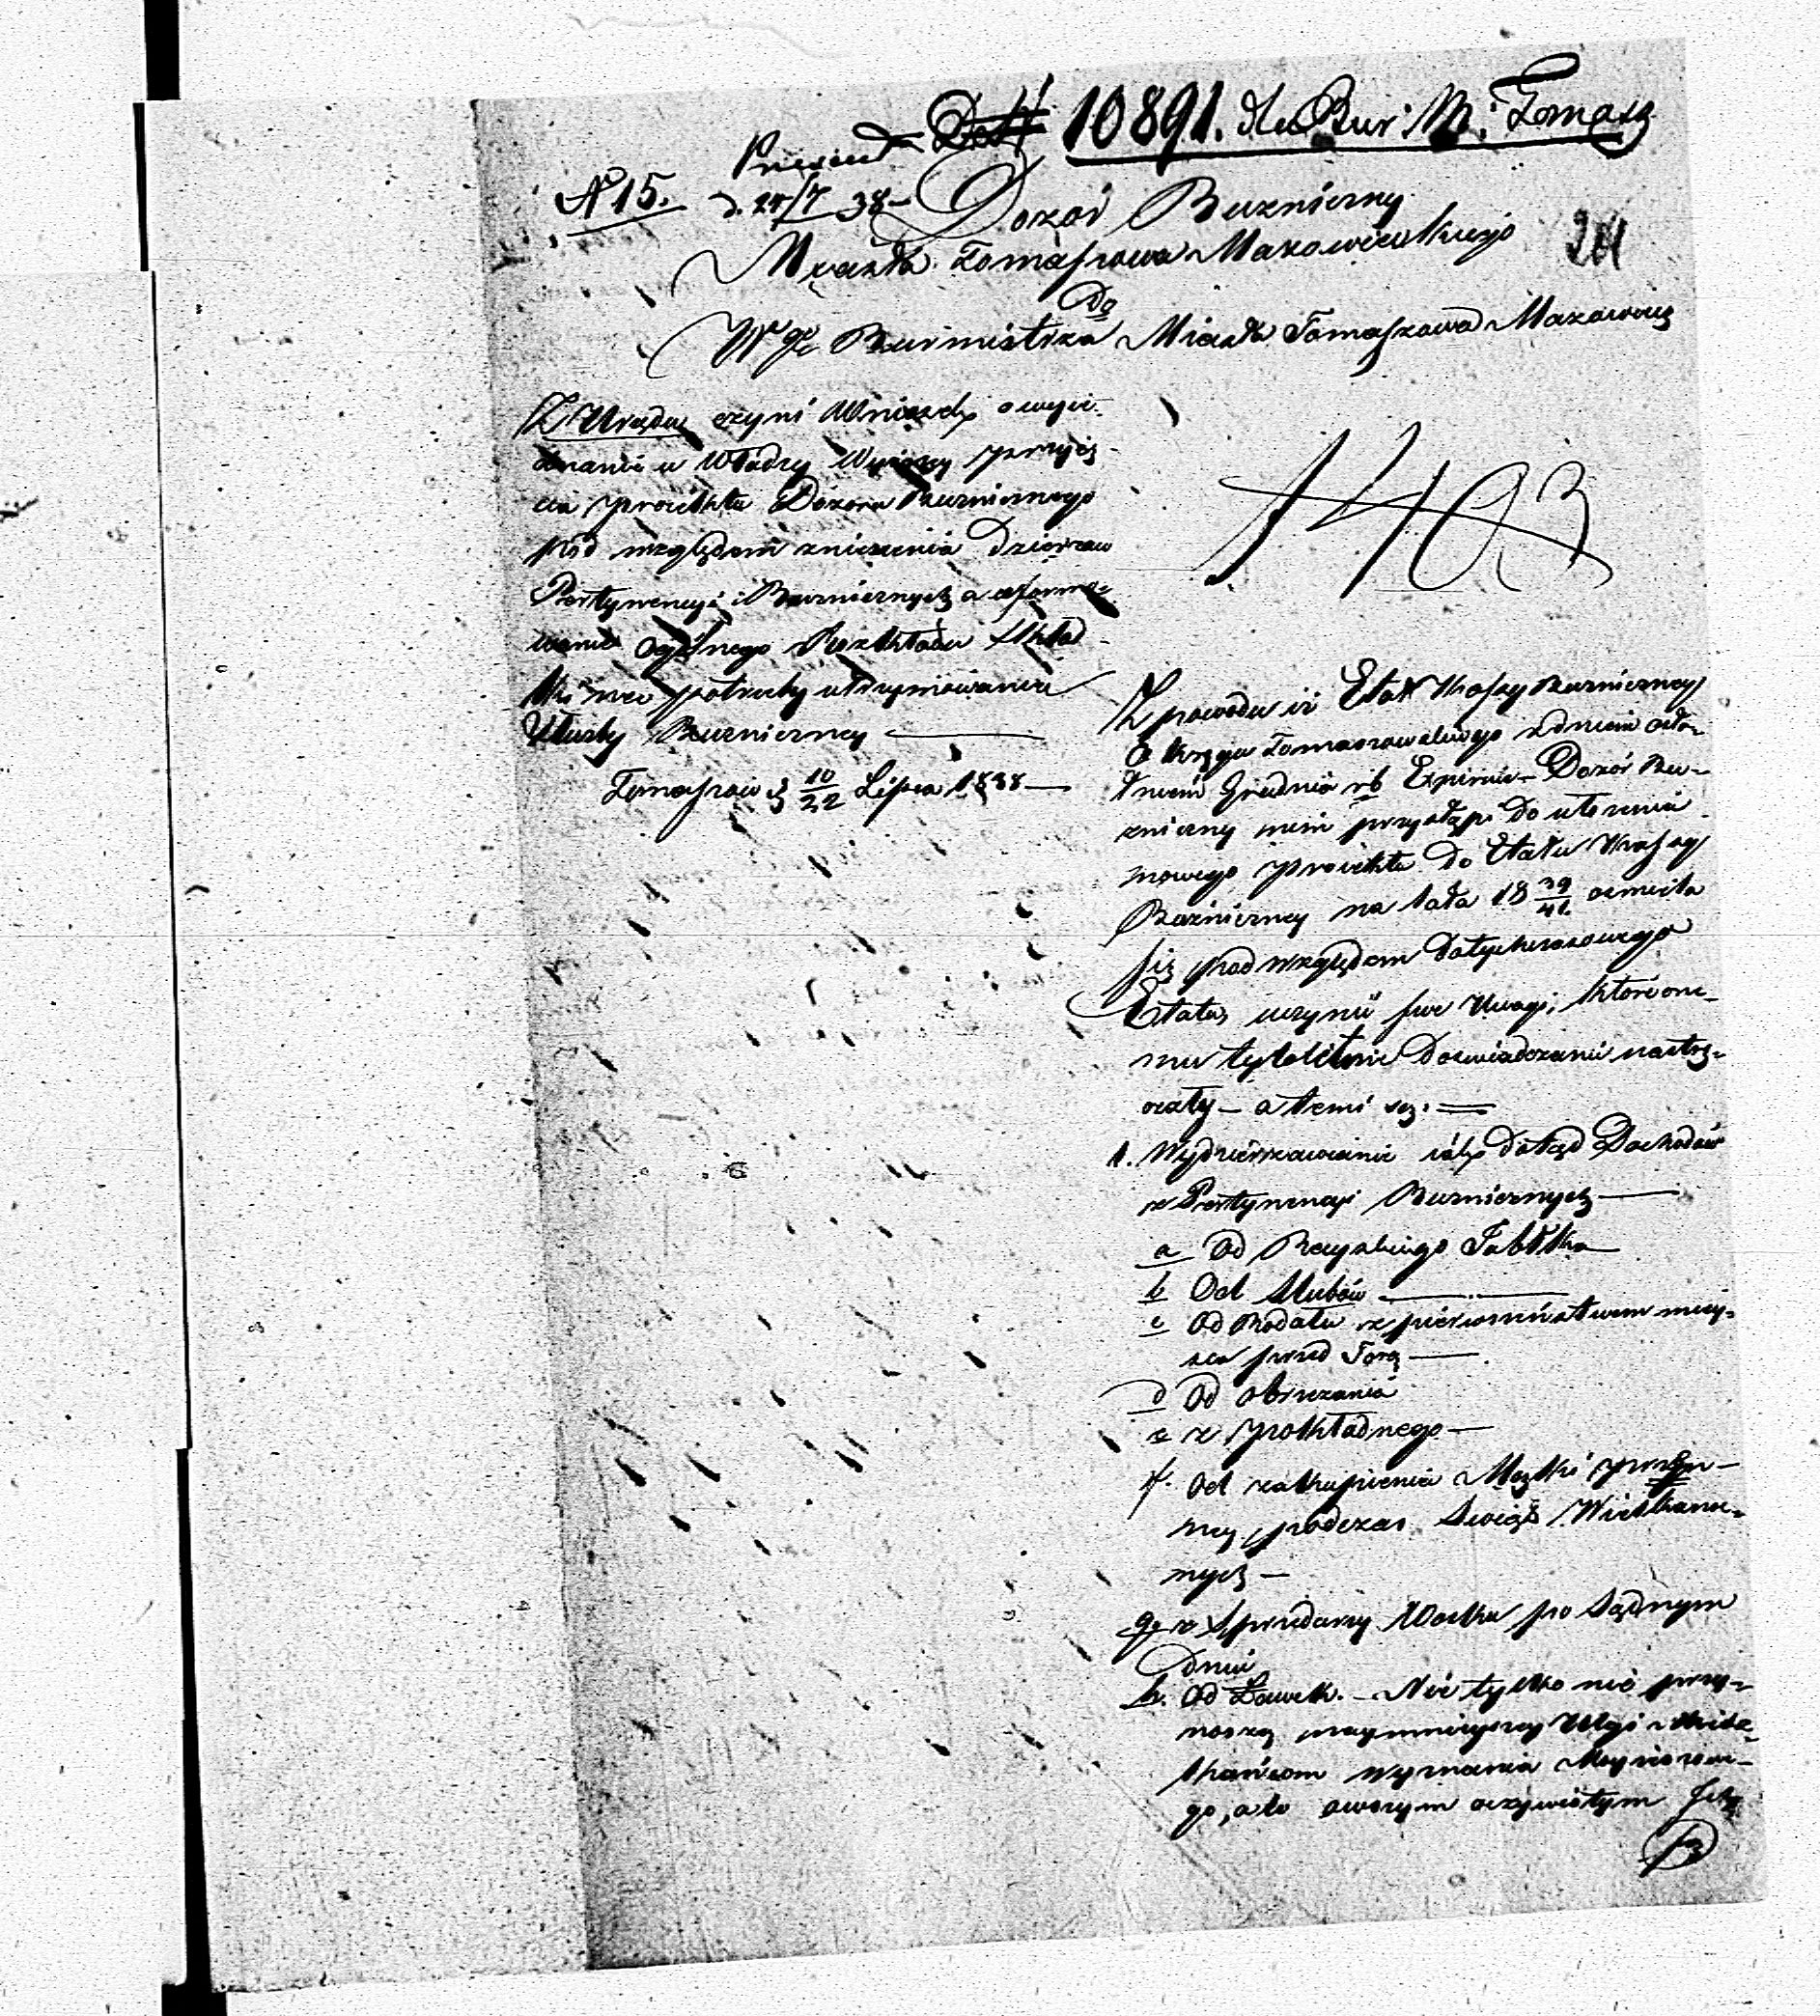 10891. do Bur. M. Tomasz
N 15.
d. 24/7 38 –
Dozór Buzniczny
Miasta Tomaszowa Mazowieckiego
211
Do
Wgo Burmistrza Miasta Tomaszowa Mazowiec
Z Urzędu czyni Wniosek o wyie-
dnanie u Władzy Wyższey przyię-
cia proiektu Dozoru Buznicznego
pod względem zniesienia Dzierzaw
Pertynencyi Buznicznych a uformo-
wanie Ogólnego Rozkładu Skład-
ki na potrzeby utrzymowania
Służby Buzniczney
Tomaszów d 10/22 Lipca 1838 —
Z powodu iż Etat Kassy Buzniczney
Okręgu Tomaszowskiego z dniem osta-
tniem Grudnia rb Expiruie – Dozór Bu-
zniczny nim przystąpi do ułożenia
nowego proiektu do Etatu Kassy
Buzniczney na lata 18 39/41 ośmiela
się pod względem dotychczasowego
Etatu uczynić swe Uwagi, które one-
mu tyloletnie Doświadczenie nastrę-
czały – a temi są. =
1. Wydzierzawianie iako dotąd Dochodów
z Pertynencyi Buznicznych —
a Od Rayskiego Jabłka —
b Od Slubów —
c Od Rodału z pierwszeństwem miey-
sca przed Torą —
d Od obrzezania
e z pokładnego —
f. Od zakupienia Mączki pszen-
ney podczas Swiąt Wielkano-
nych —
g z Sprzedazy Wosku po Sądnym
dniu
h. Od Ławek. – Nie tylko nie przy-
noszą naymnieyszey Ulgi Miesz-
kańcom Wyznania Moyżeszowe-
go, a to